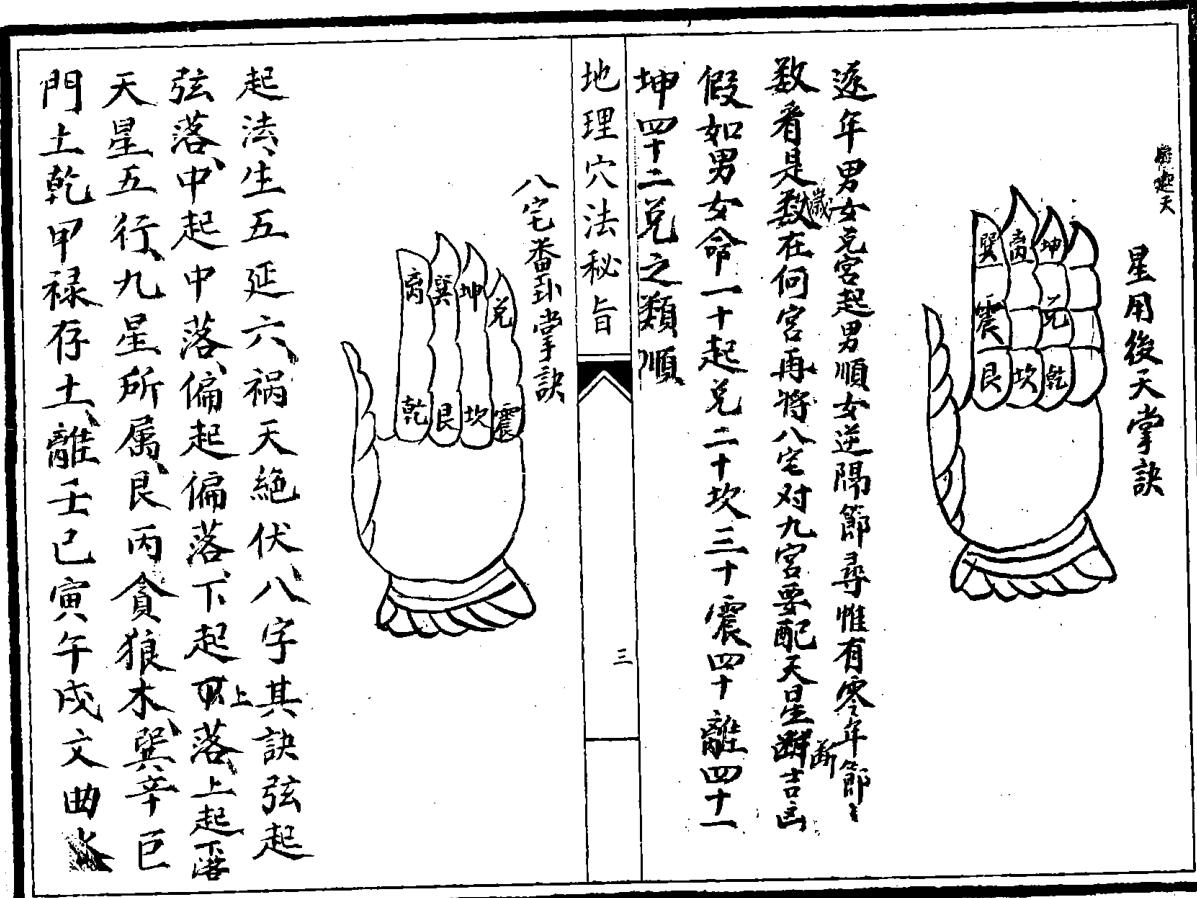 星用後天掌訣
巽 离 坤
震 兑
艮 坎 乾
逐年男女兑宮起男順女逆隔節尋惟有零年節〻
数看是数歲在何宮再将八宅对九宮要配天星断吉凶
假如男女命一十起兑二十坎三十震四十離四十一
坤四十二兑之類順
地理穴法秘旨
三
八宅番卦掌訣
离 巽 坤 兑
乾 艮 坎 震
起法、生五延六、祸天絕伏、八字其訣弦起
弦落、中起中落、偏起偏落、下起上落、上起下落
天星五行、九星所属、艮丙貪狼木、巽辛巨
門土乾甲禄存土、離壬己寅午戌文曲水